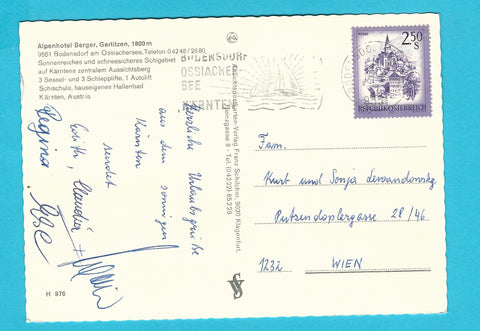 Alpenhotel Berger, Gerlitzen, 1800 m
9551 Bodensdorf am Ossiachersee, Telefon 04248/2880
Sonnenreiches und schneesicheres Schigebiet
auf Kärntens zentralem Aussichtsberg
3 Sessel- und 3 Schlepplifte, 1 Autolift
Schischule, hauseigenes Hallenbad
Kärnten, Austria
BODENSDORF
OSSIACHER-
SEE
KÄRNTEN
2.50
S
REPUBLIK ÖSTERREICH
Herzliche Urlaubsgrüße
aus dem sonnigen
Kärnten
sendet
Edith, Claudia +
Regina
-Verlag Franz Schilcher, 9020 Klagenfurt,
8 - Tel. (04222) 85228
Fam.
Kurt und Sonja Lewandowsky
Putzendoplergasse 28/46
1232 WIEN
H 976